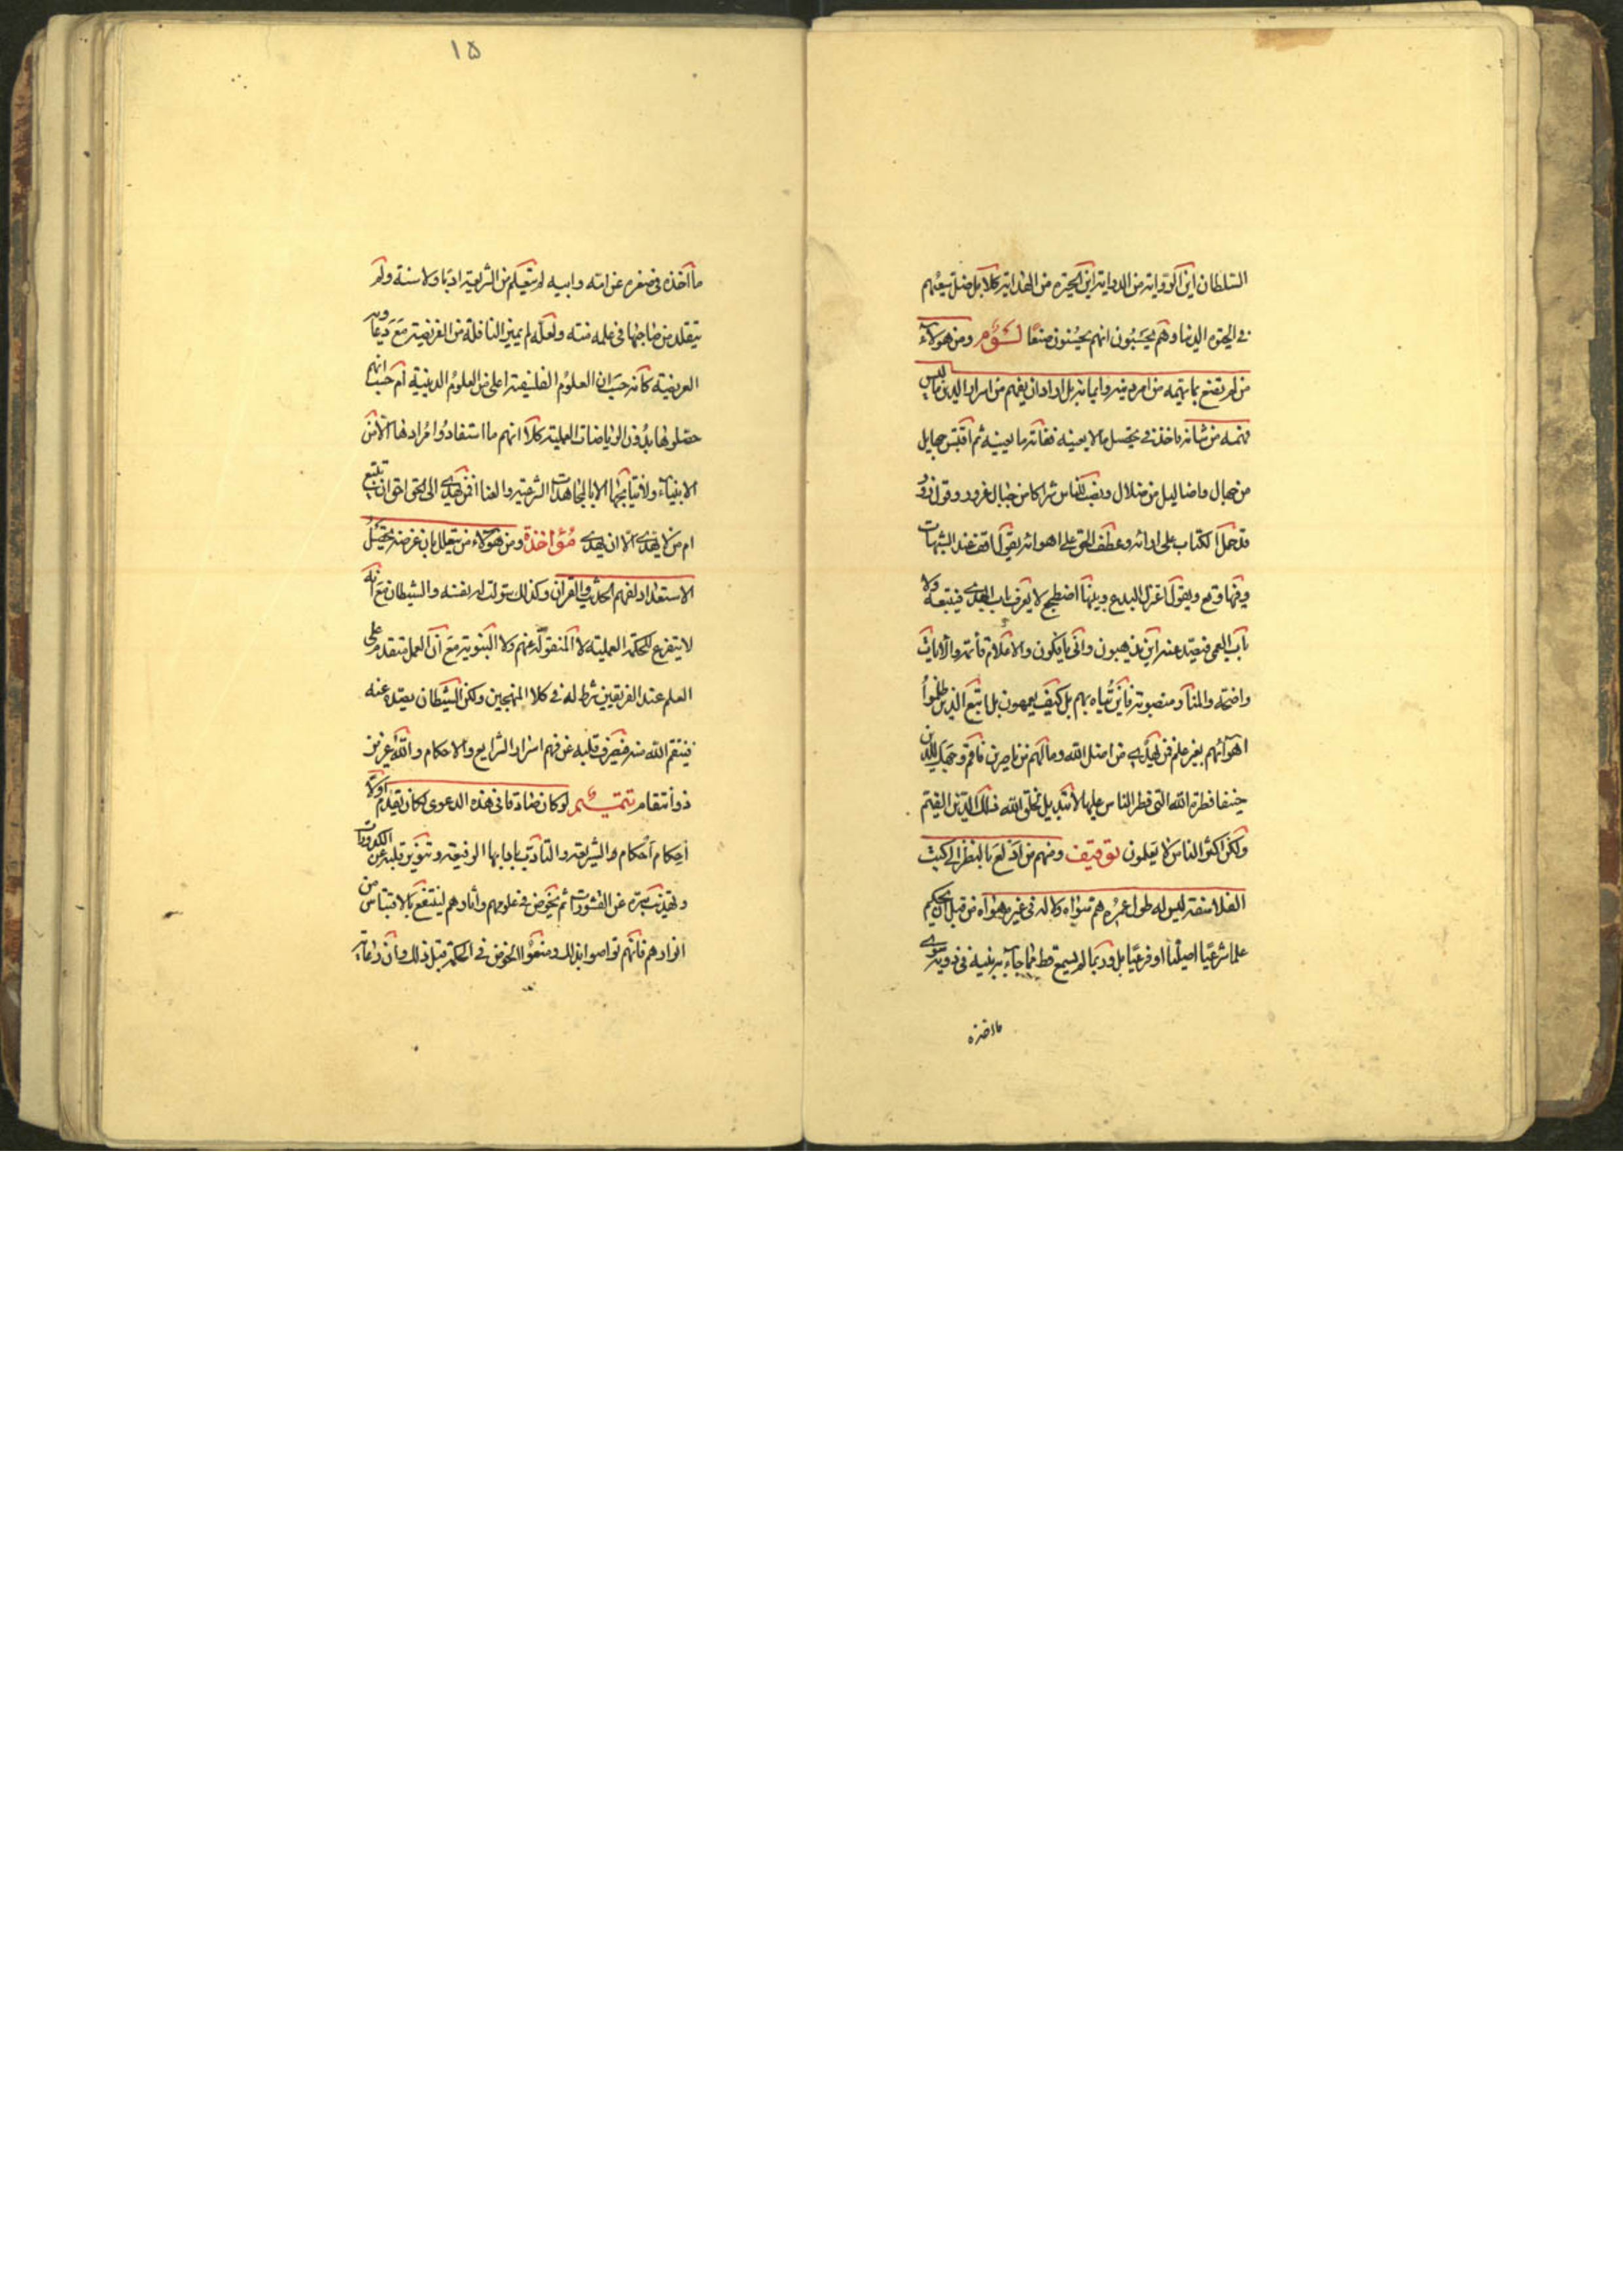 السلطان اين الرواية من الدراية اين الحيرة من الهداية كلا بل ضل سعيهم
في الحيوة الدنيا وهم يحسبون انهم يحسنون صنعا ومن هؤلاء
من لم يقنع بما يهمه من امر دينه وايمانه بل اراد ان يفهم من اسرار الدين ما ليس
فهمه من شانه فاخذ في تحصيل ما لا يعينه ففاته ما يعينه ثم اقتبس جهايل
من جهال واضاليل من ضلال ونصب للناس شراكا من حبال غرور وقول زور
قد حمل الكتاب على ارائه وعطف الحق على اهوائه يقول اقف عند الشبهات
وفيها وقع ويقول اعتزل البدع وبينها اضطجع لا يعرف باب الهدى فيتبعه ولا
باب العمى فيصد عنه اين يذهبون وانى يؤفكون والاعلام قائمة والايات
واضحة والمنار منصوبة فاين يتاه بهم بل كيف يعمهون بل اتبع الذين ظلموا
اهوائهم بغير علم فمن يهدي من اضل الله وما لهم من ناصرين فاقم وجهك للدين
حنيفا فطرة الله التي فطر الناس عليها لا تبديل لخلق الله ذلك الدين القيم
ولكن اكثر الناس لا يعلمون توقيف ومنهم من اولع بالنظر الى كتب
الفلاسفة ليس له طول عمره هم سواه ولا له في غيره هواه من قبل ان يحكم
علما شرعيا اصليا او فرعيا بل وربما لم يسمع قط مما جاء به نبيه في دينه سوى
ما اخذه
١٥
ما اخذه في صغره عن امه وابيه لم يتعلم من الشريعة ادبا ولا سنة ولم
يتقلد من صاحبها في علمه منة ولعله لم يميز النافلة من الفريضة مع دعاويه
العريضة كانه حسب ان العلوم الفلسفية اعلى من العلوم الدينية ام حسب انهم
حصلوها بدون الرياضات العملية كلا انهم ما استفادوا مرادها الا من
الانبياء ولا نتايجها الا بالمجاهدات الشرعية والعنا افمن يهدي الى الحق احق ان يتبع
ام من لا يهدي الا ان يهدى مؤاخذة ومن هؤلاء من يتعلل بان غرضه تحصيل
الاستعداد لفهم الحديث والقران وكذلك سولت له نفسه والشيطان مع انه
لا يتفرغ للحكمة العملية لا المنقولة عنهم ولا النبوية مع ان العمل متقدم على
العلم عند الفريقين شرط له في كلا المنهجين ولكن الشيطان يصده عنه
فينتقم الله منه فيصرف قلبه عن فهم اسرار الشرايع والاحكام والله عزيز
ذو انتقام تتميم لو كان صادقا في هذه الدعوى لكان يقدم اولا
احكام احكام الشريعة والتادب بادابها الرفيعة وتنوير قلبه عن الكدورات
وتهذيب سره عن القشورات ثم يخوض في علومهم واثارهم لينتفع بالاقتباس من
انوارهم فانهم تواصوا بذلك ومنعوا الخوض في الحكمة قبل ذلك وان رعاية